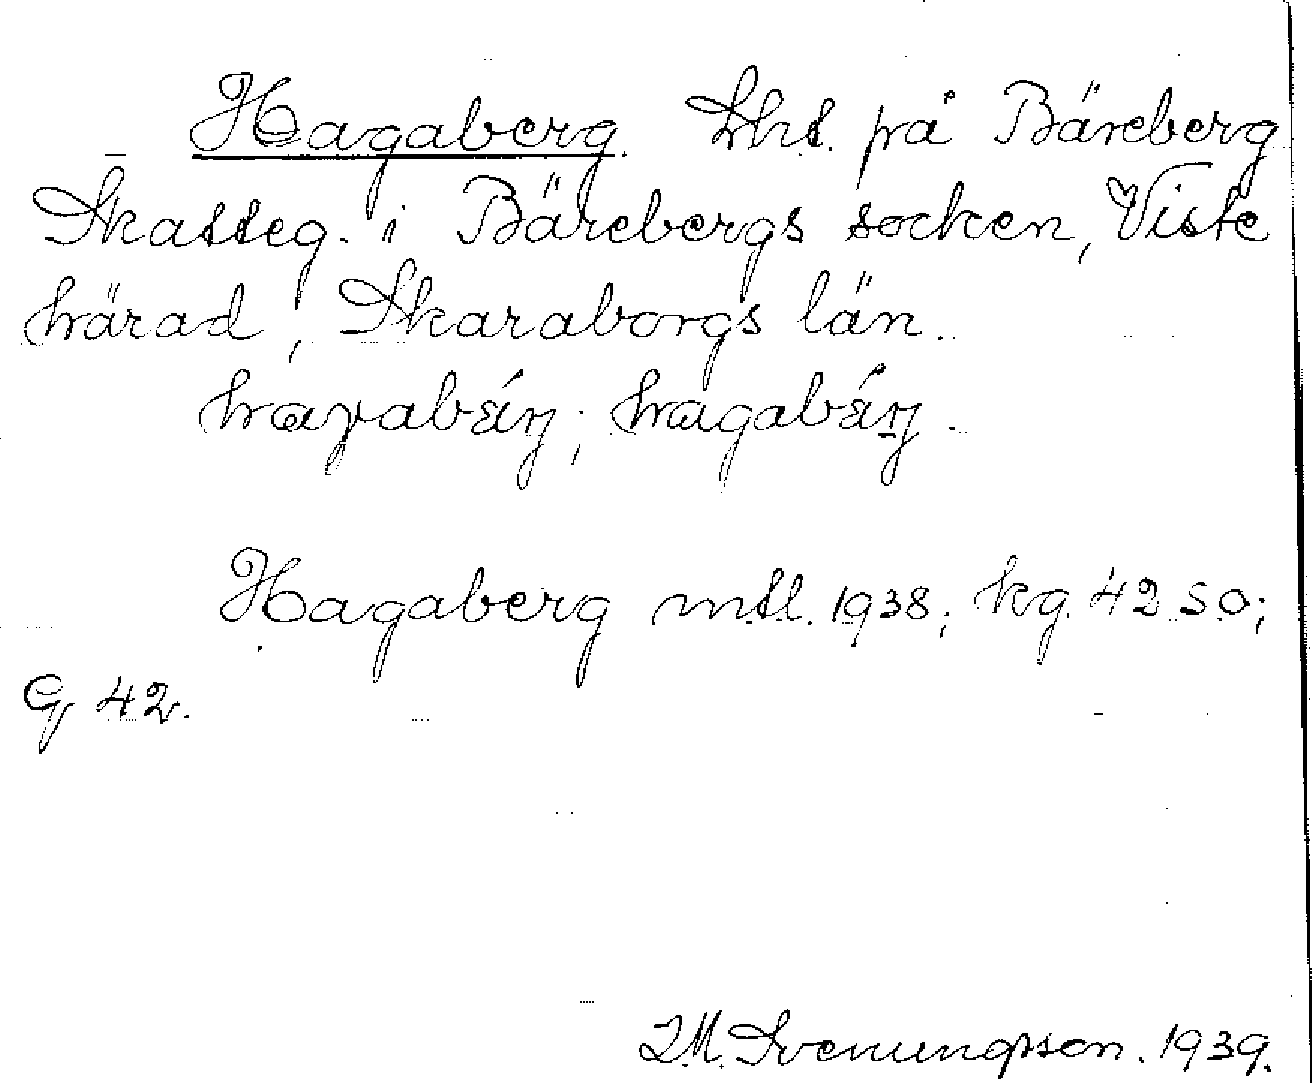 Hagaberg. Lht. på Bäreberg
Skatteg. i Bärebergs socken, Viste
härad, Skaraborgs län.
Hagaberg mtl. 1938; kg. 42 SO;
G 42.
I.M. Svenungsson. 1939.